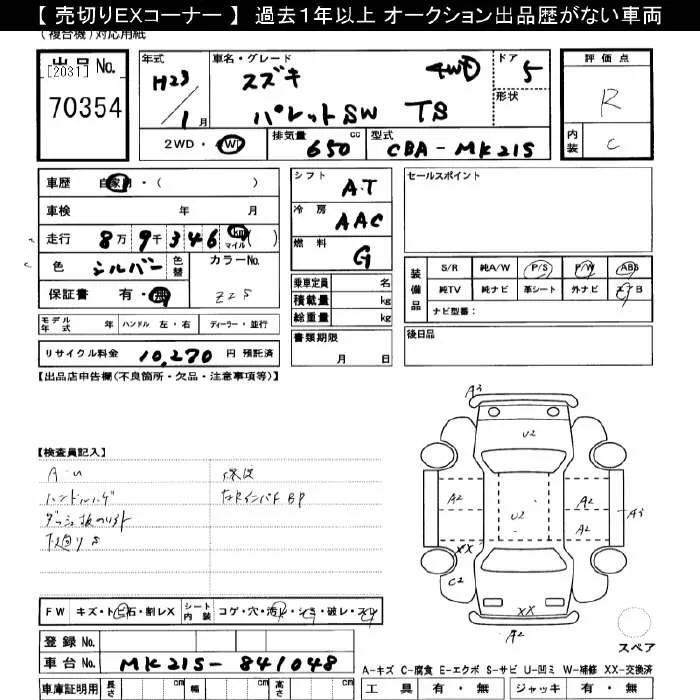 【 売切りEXコーナー 】 過去１年以上 オークション出品歴がない車両
(複合機)対応用紙
出品 No.
[2031]
70354
年式
H23
/1月
車名・グレード
スズキ 4WD
パレットSW TS
ドア
5
形状
評価点
R
内装
C
2WD・4WD
排気量
650 cc
型式
CBA-MK21S
車歴 自家用・( )
車検 年 月
走行 8万 9千 346 km マイル ( )
色 シルバー 色替 カラーNo.
保証書 有・無 Z2S
シフト AT
冷房 AAC
燃料 G
乗車定員 名
積載量 kg
総重量 kg
書類期限
月 日
セールスポイント
装備品
S/R 純A/W P/S P/W ABS
純TV 純ナビ 革シート 外ナビ エアB
ナビ型番：
後日品
モデル年式 年 ハンドル 左・右 ディーラー・並行
リサイクル料金 10,270 円 預託済
【出品店申告欄(不良箇所・欠品・注意事項等)】
【検査員記入】
A・U
ハンドルハゲ
下廻りS
A3
U2
A2
U2
A2
A2
A3
XX
C2
XX
A2
スペア
FW キズ・トビ石・割レX シート内装 コゲ・穴・汚レ・シミ・破レ・スレ
登録 No.
車台 No. MK21S-841048
車庫証明用 長さ cm 幅 cm 高さ cm
A-キズ C-腐食 E-エクボ S-サビ U-凹ミ W-補修 XX-交換済
工具 有・無 ジャッキ 有・無